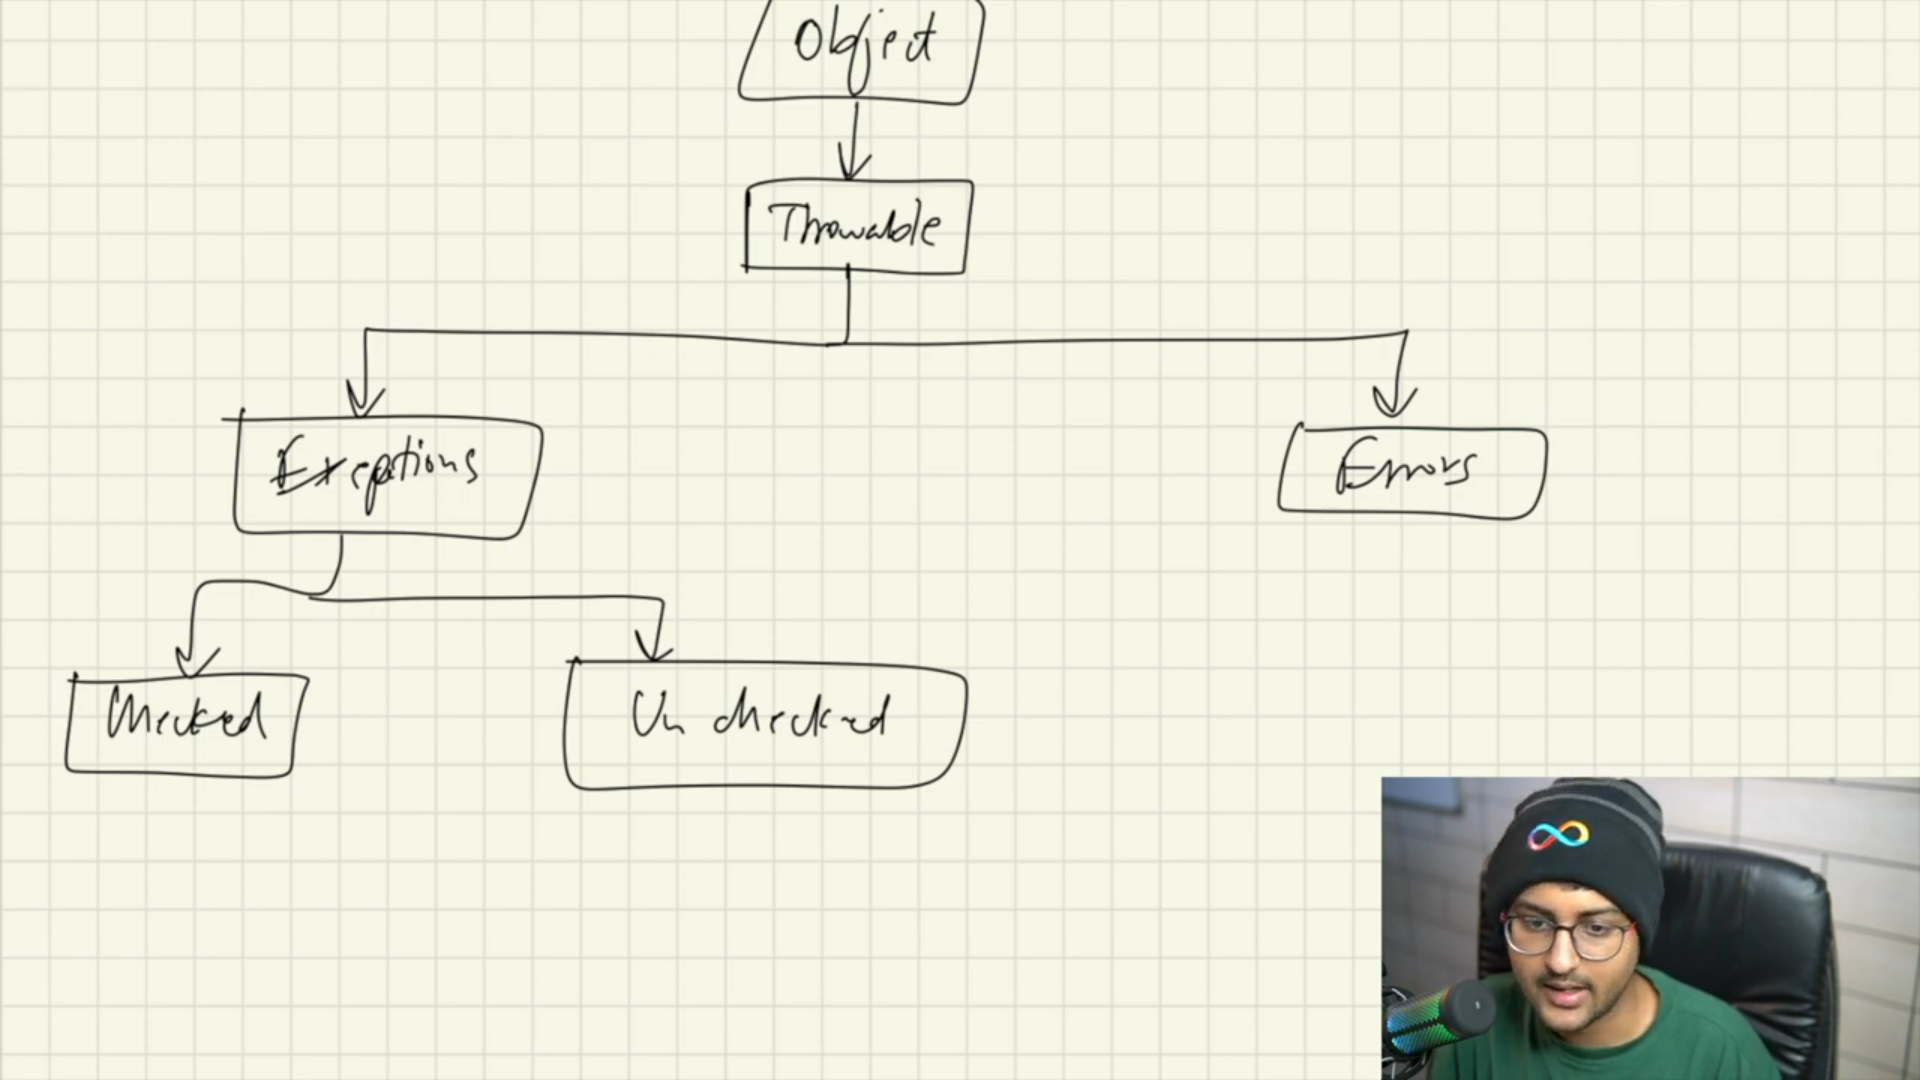 Object
Throwable
Exeptions
Errors
Checked
Un checked